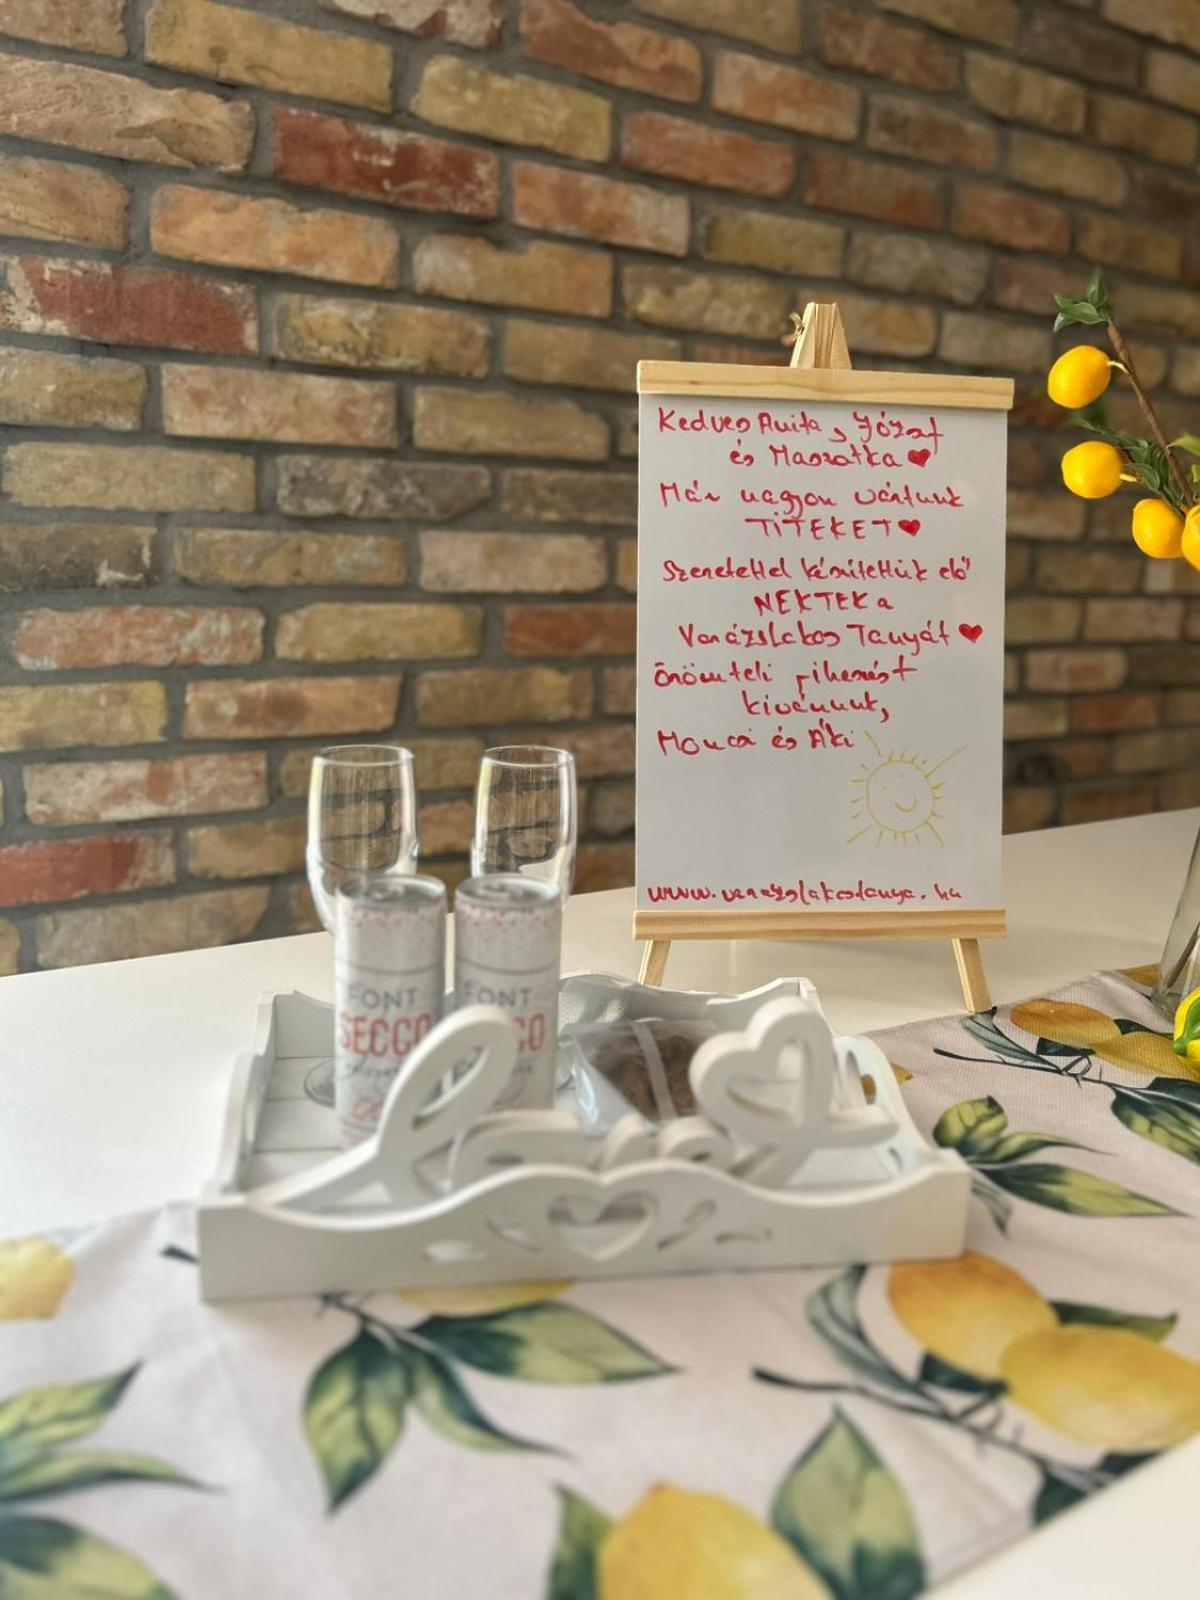 Kedves Anita, József
és Maszatka
Már nagyon vártunk
TITEKET
Szeretettel készítettük elő
NEKTEK a
Varázslakos Tanyát
Örömteli pihenést
kívánunk,
Moncsi és Áki
www.varazslakostanya.hu
FONT
SECCO
FONT